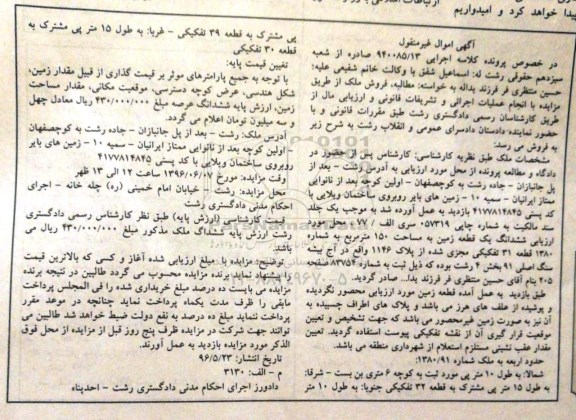 پیدا خواهد کرد و امیدواریم
آگهی اموال غیرمنقول
در خصوص پرونده کلاسه اجرایی ۹۴۰۰۸۵/۱۳ صادره از شعبه
سیزدهم حقوقی رشت له: اسماعیل شفق با وکالت خانم شفیعی علیه:
حسین منتظری فر فرزند یداله به خواسته: مطالبه، فروش ملک از طریق
مزایده با انجام عملیات اجرائی و تشریفات قانونی و ارزیابی مال از
طریق کارشناسان رسمی دادگستری رشت طبق مقررات قانونی و با
حضور نماینده دادستان دادسرای عمومی و انقلاب رشت به شرح زیر
به فروش می رسد:
مشخصات ملک طبق نظریه کارشناسی: کارشناس پس از حضور در
دادگاه و مطالعه پرونده از محل مورد ارزیابی به آدرس رشت - بعد از
پل جانبازان - جاده رشت به کوچصفهان - اولین کوچه بعد از نانوایی
ممتاز ایرانیان - سمیه ۱۰ - زمین های بایر روبروی ساختمان ویلایی با
کد پستی ۴۱۷۷۸۱۴۸۴۵ بازدید به عمل آورده شد به موجب یک جلد
سند مالکیت به شماره چاپی ۰۵۷۳۱۹ سری الف / ۷۷ محل مورد
ارزیابی ششدانگ یک قطعه زمین به مساحت ۱۵۰ مترمربع به شماره
۱۳۸۰ قطعه ۳۱ تفکیکی مجزی شده از پلاک ۱۱۴۶ واقع در آج بیشه
سنگ اصلی ۹۱ بخش ۴ رشت بوده که ذیل ثبت به شماره ۸۳۷۵۴ صفحه
۲۰۵ بنام آقای حسین منتظری فر فرزند یدا... صادر گردید.
طبق بازدید به عمل آمده قطعه زمین مورد ارزیابی محصور نگردیده
و پوشیده از علف های هرز می باشد و پلاک های اطراف چسبیده به
آن نیز به صورت زمین غیرمحصور می باشد که جهت تشخیص و تعیین
موقعیت قرار گیری آن از نقشه تفکیکی پیوست استفاده گردید. تعیین
مقدار عقب نشینی مستلزم استعلام از شهرداری منطقه می باشد.
حدود اربعه به ملک شماره ۱۳۸۰/۹۱:
شمالا: به طول ۱۰ متر پی مورد ثبت به کوچه ۶ متری بن بست - شرقا:
به طول ۱۵ متر پی مشترک به قطعه ۳۲ تفکیکی جنوبا: به طول ۱۰ متر
پی مشترک به قطعه ۳۹ تفکیکی - غربا: به طول ۱۵ متر پی مشترک به
قطعه ۳۰ تفکیکی
تعیین قیمت پایه:
با توجه به جمیع پارامترهای موثر بر قیمت گذاری از قبیل مقدار زمین،
شکل هندسی، عرض کوچه دسترسی، موقعیت مکانی، مقدار مساحت
زمین، ارزش پایه ششدانگ عرصه مبلغ ۴۳۰/۰۰۰/۰۰۰ ریال معادل چهل
و سه میلیون تومان اعلام می گردد.
آدرس ملک: رشت - بعد از پل جانبازان - جاده رشت به کوچصفهان
- اولین کوچه بعد از نانوایی ممتاز ایرانیان - سمیه ۱۰ - زمین های بایر
روبروی ساختمان ویلایی با کد پستی ۴۱۷۷۸۱۴۸۴۵
وقت مزایده: مورخ ۱۳۹۶/۰۶/۰۷ ساعت ۱۲ الی ۱۳ ظهر
محل مزایده: رشت - خیابان امام خمینی (ره) چله خانه - اجرای
احکام مدنی دادگستری رشت
قیمت کارشناسی (ارزش پایه) طبق نظر کارشناس رسمی دادگستری
رشت ارزش پایه ششدانگ ملک مذکور مبلغ ۴۳۰/۰۰۰/۰۰۰ ریال می
باشد.
توضیح: مزایده با مبلغ ارزیابی شده آغاز و کسی که بالاترین قیمت
را پیشنهاد نماید برنده مزایده محسوب می گردد طالبین در نتیجه برنده
مزایده می بایست ده درصد مبلغ خریداری شده را فی المجلس پرداخت
مابقی را ظرف مدت یکماه پرداخت نماید چنانچه در موعد مقرر
پرداخت ننماید مبلغ ده درصد به نفع دولت ضبط خواهد شد طالبین می
توانند جهت شرکت در مزایده ظرف پنج روز قبل از مزایده از محل فوق
الذکر مورد مزایده بازدید به عمل آورند.
تاریخ انتشار: ۹۶/۵/۲۳
م - الف: ۳۱۳۰
دادورز اجرای احکام مدنی دادگستری رشت - احدپناه